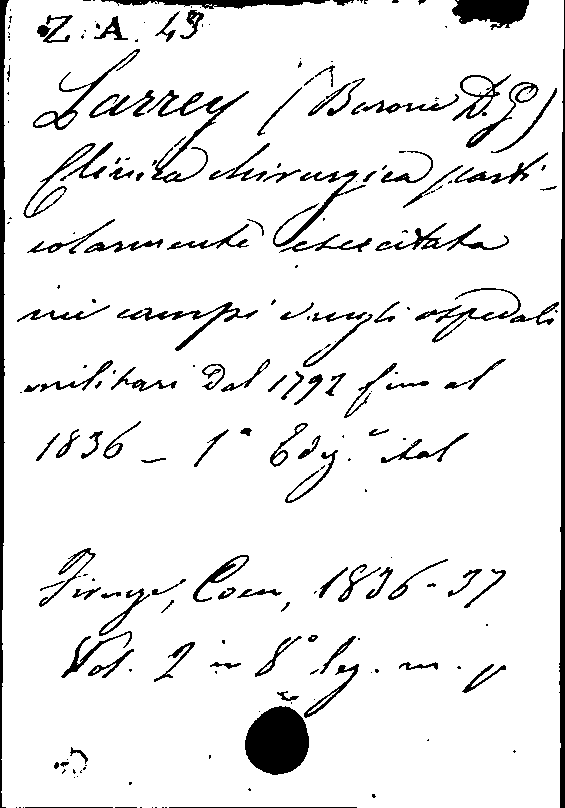 Z. A. 43
Larrey (Barone D. G)
Clinica chirurgica parti-
colarmente esercitata
nei campi e negli ospedali
militari dal 1792 fino al
1836 - 1ª Ediz.e ital
Firenze, Coen, 1836-37
Vol. 2 in 8° leg. m. p